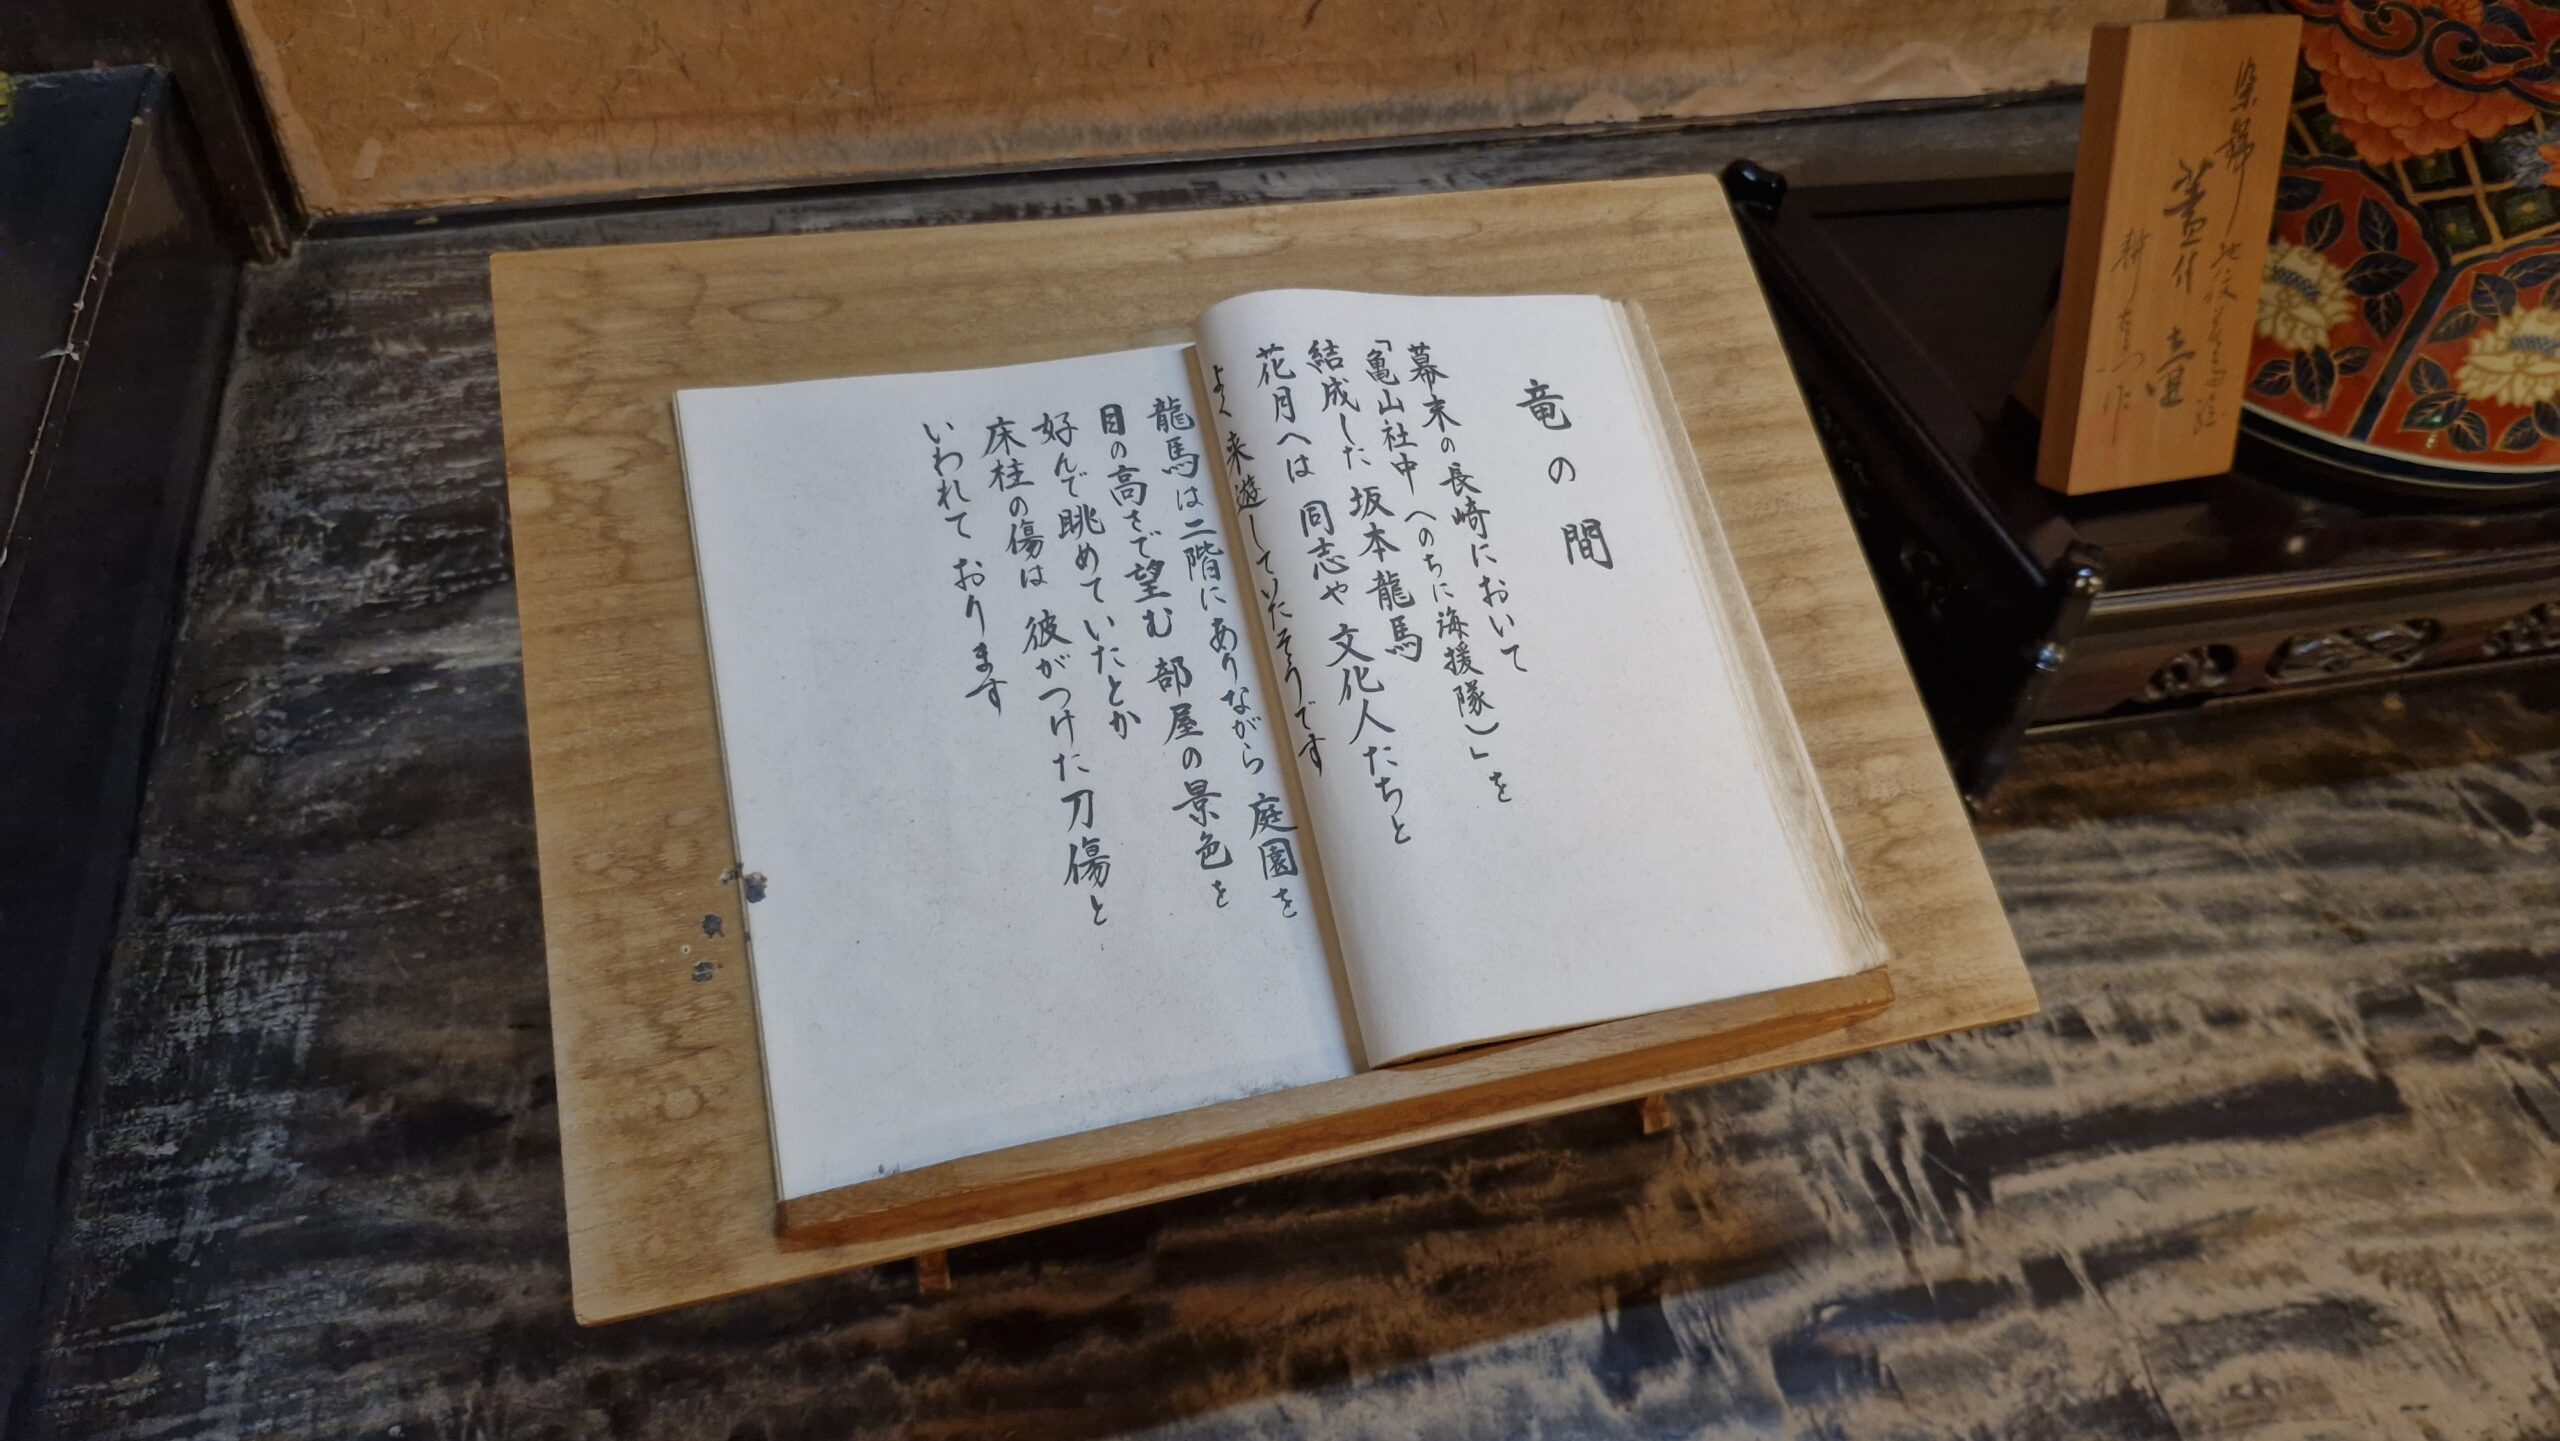 竜の間
幕末の長崎において
「亀山社中(のちに海援隊)」を
結成した 坂本龍馬
花月へは 同志や 文化人たちと
よく 来遊していたそうです
龍馬は二階にありながら 庭園を
目の高さで望む 部屋の景色を
好んで眺めていたとか
床柱の傷は 彼がつけた刀傷と
いわれて おります
染錦
蓋付 壺